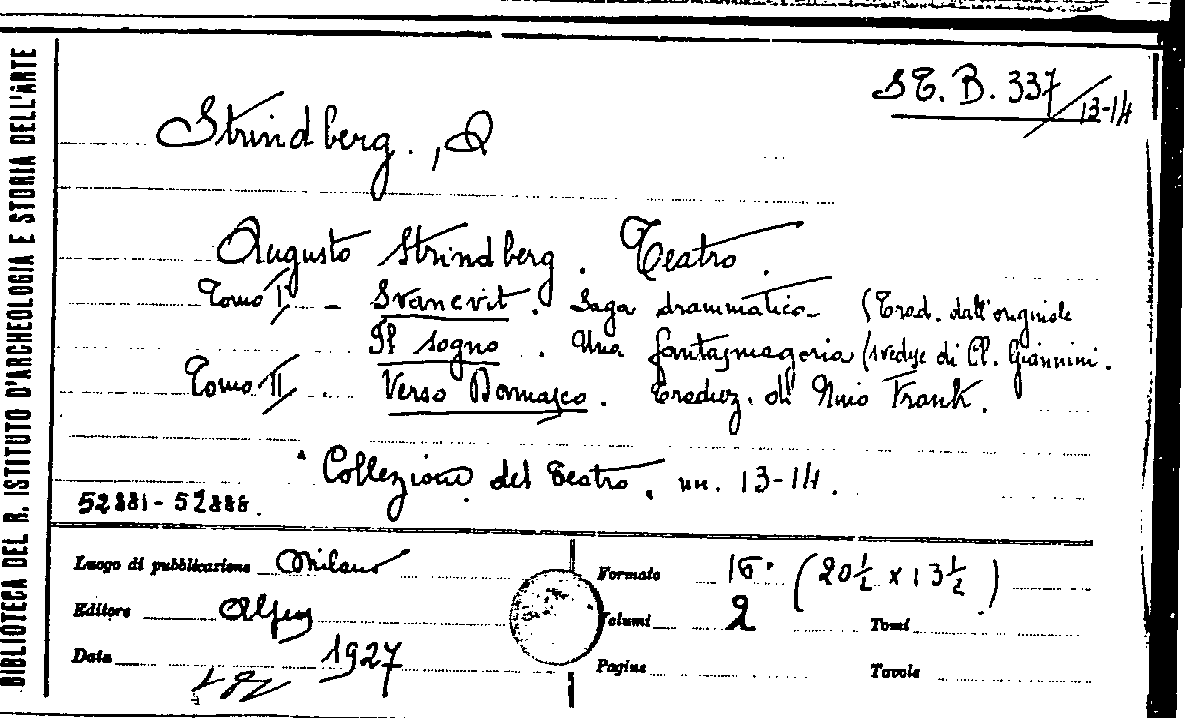 BIBLIOTECA DEL R. ISTITUTO D'ARCHEOLOGIA E STORIA DELL'ARTE
ST. B. 337/13-14
Strindberg., A
Augusto Strindberg. Teatro.
Tomo I - Svanevit. Saga drammatica - (Trad. dall'originale
Il sogno. Una fantasmagoria (svedese di Cl. Giannini.
Tomo II. Verso Damasco. Traduz. di Nino Frank.
"Collezione del Teatro. nn. 13-14.
Luogo di pubblicazione Milano
Formato 16° (20½ x 13½)
Editore
Volumi 2 Tomi
Data 1927
Pagine Tavole